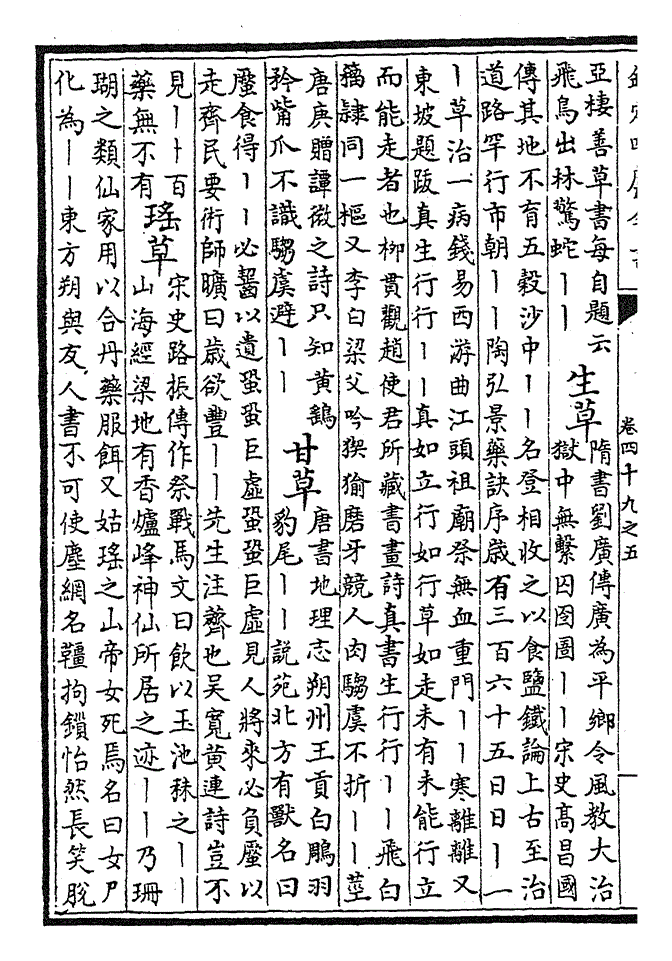 卷四十九之五
亞棲善草書每自題云
飛鳥出林驚蛇丨丨
生草
隋書劉廣傳廣為平鄉令風教大治
獄中無繫囚囹圄丨丨宋史髙昌國
傳其地不有五穀沙中丨丨名登相收之以食鹽鐵論上古至治
道路罕行市朝丨丨陶弘景藥訣序歳有三百六十五日日丨一
丨草治一病錢易西游曲江頭祖廟祭無血重門丨丨寒離離又
東坡題跋真生行行丨丨真如立行如行草如走未有未能行立
而能走者也栁貫觀趙使君所藏書畫詩真書生行行丨丨飛白
籀隸同一樞又李白梁父吟猰㺄磨牙競人肉騶虞不折丨丨莖
唐庚贈譚微之詩只知黄鵠
矜觜爪不識騶虞避丨丨
甘草
唐書地理志朔州王貢白鵰羽
豹尾丨丨說苑北方有獸名曰
蟨食得丨丨必齧以遺蛩蛩巨虛蛩蛩巨虛見人將來必負蟨以
走齊民要術師曠曰歳欲豐丨丨先生注薺也吳寛黄連詩豈不
見丨丨百
藥無不有
瑶草
宋史路振傳作祭戰馬文曰飲以玉池秣之丨丨
山海經梁地有香爐峰神仙所居之迹丨丨乃珊
瑚之類仙家用以合丹藥服餌又姑瑶之山帝女死焉名曰女尸
化為丨丨東方朔與友人書不可使塵網名韁拘鎖怡然長笑脫